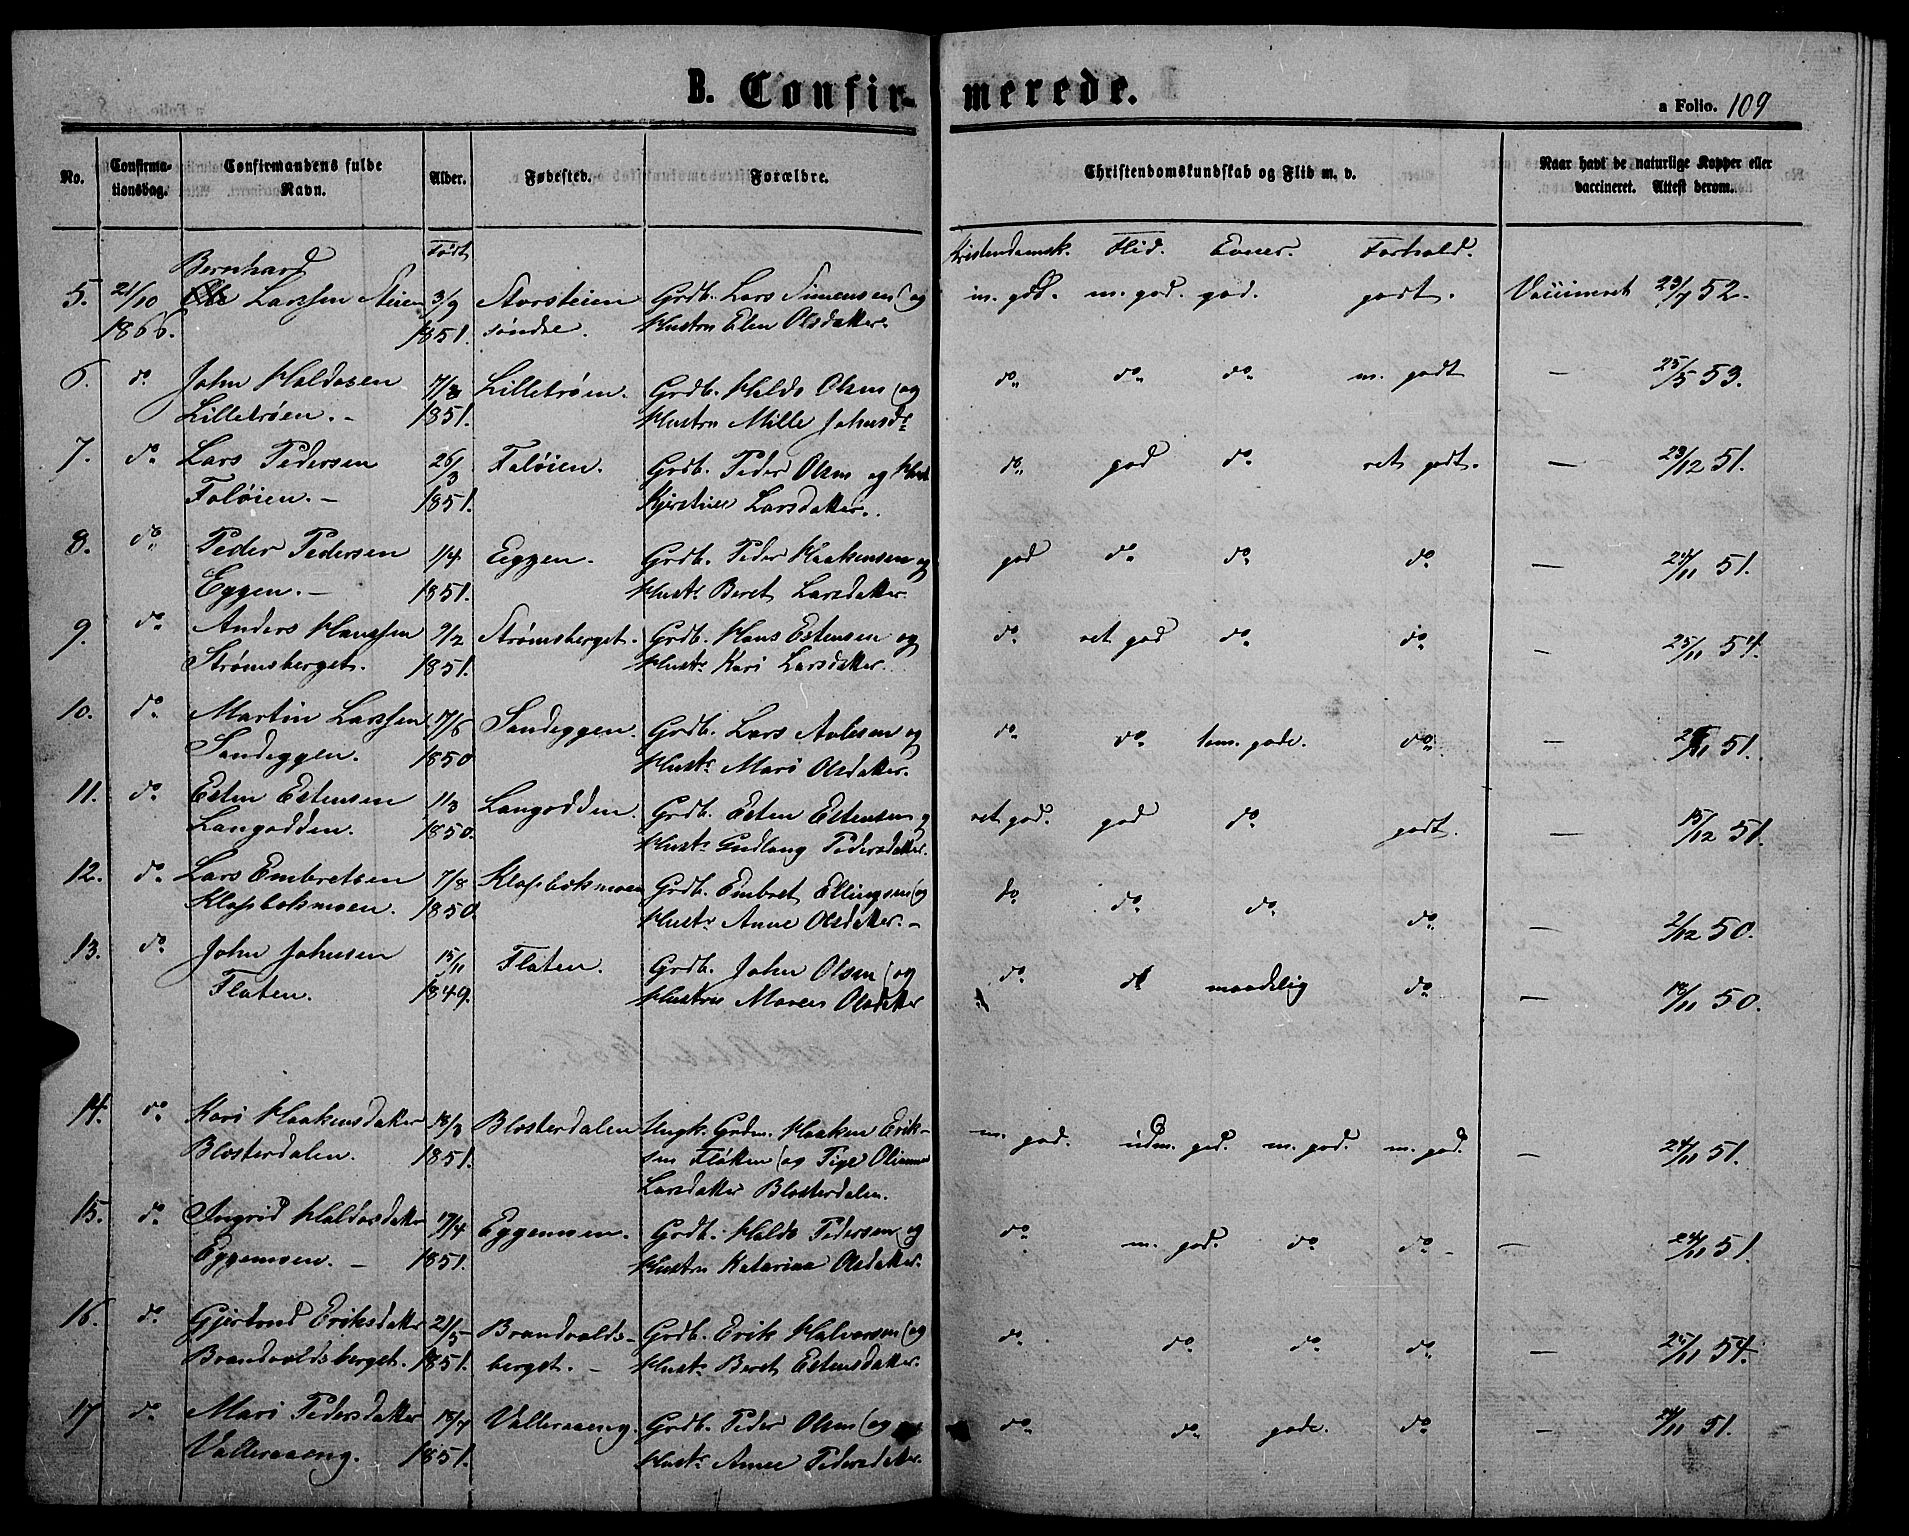 B. Confir- merede.
a Folio. 109
No. Confirma-tionsdag. Confirmandens fulde Navn. Alder. Fødested. Forældre. Christendomskundskab og Flid m. v. Naar havt de naturlige Kopper eller vaccineret. Attest derom.
Født Kristendomsk. Flid. Evner. Forhold.
Bernhard
5. 21/10 Larssen Steien 3/9 Storsteien Grdb. Lars Simensen og m. god. m. god. god. godt. Vaccineret 23/7 52.
1866. 1851. søndre. Hustru Elen Olsdatter.
6. do John Haldosen 7/8 Lilletrøen. Grdb. Haldo Olsen og do do do m. godt — 25/5 53.
Lilletrøen. - 1851. Hustru Mille Johnsdr
7. do Lars Pedersen 26/3 Foløien. Grdb. Peder Olsen og Hust do god do ret godt. — 23/12 51.
Foløien. - 1851. Kjerstine Larsdatter.
8. do Peder Pedersen 1/4 Eggen. Grdb. Peder Haakensen og god do do do — 24/11 51.
Eggen. - 1851. Hustr Beret Larsdatter
9. do Anders Hanssen 9/2 Strømsberget. Grdb. Hans Estensen og do ret god do do — 25/11 54.
Strømsberget. 1851. Hustr Kari Larsdatter.
10. do Martin Larssen 17/6 Sandeggen. Grdb. Lars Avlesen og do do tem. gode. do — /11 51.
Sandeggen. 1850 Hustr Mari Olsdatter.
11. do Esten Estensen 11/3 Langodden. Grdb. Esten Estensen og ret god. god do godt. — 15/12 51.
Langodden. 1850. Hustr Gudlaug Pedersdatter.
12. do Lars Embretsen 7/8 Klossbokmoen Grdb. Embret Ellingsen og do do do do — 2/12 50.
Klossbokmoen. 1850. Hustr Anne Olsdatter. -
13. do John Johnsen 15/11 Flaten. Grdb. John Olsen og do do maadelig do — 18/11 50.
Flaten. 1849. Hustru Maren Olsdatter
14. do Kari Haakensdatter 18/3 Blosterdalen Ungk. Grdm. Haaken Erik- m. god. udm. god. m. god. m. god. — 24/11 51.
Blosterdalen. 1851. sen Fløtten og Pige
Larsdatter Blosterdalen.
15. do Ingrid Haldosdatter 17/4 Eggemoen. Grdb. Haldo Pedersen og do m. god. do do — 24/11 51.
Eggemoen. - 1851. Hustru Katarina Olsdatter.
16. do Gjertrud Eriksdatter 21/5 Brandvolds- Grdb. Erik Halvorsen og do do do do — 25/11 54.
Brandvoldsberget. 1851. berget. - Hustr Beret Estensdatter.
17 do Mari Pedersdatter 18/7 Valleraaeng. Grdb. Peder Olsen og do do gode. do — 24/11 51.
Valleraaeng. 1851. Hustr Anne Pedersdatter.